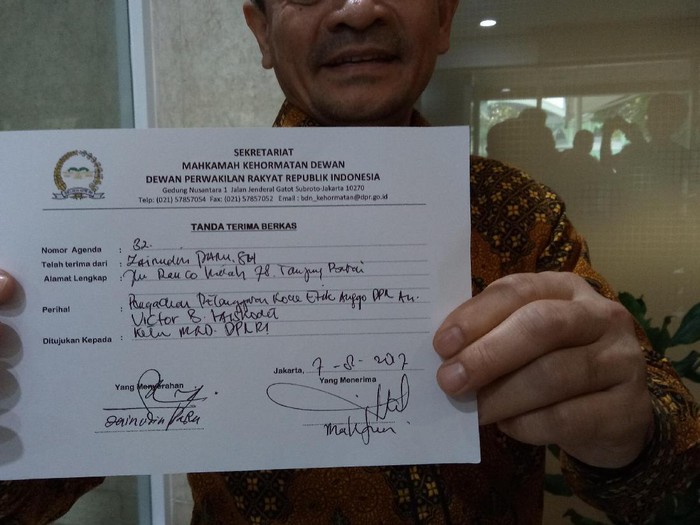 SEKRETARIAT
MAHKAMAH KEHORMATAN DEWAN
DEWAN PERWAKILAN RAKYAT REPUBLIK INDONESIA
Gedung Nusantara 1 Jalan Jenderal Gatot Subroto-Jakarta 10270
Telp: (021) 57857054 Fax: (021) 57857052 Email : bdn_kehormatan@dpr.go.id
TANDA TERIMA BERKAS
Nomor Agenda : 82.
Telah terima dari : Zainudin PARU, SH
Alamat Lengkap : 78. Tanjung
Perihal : Pengaduan Pelanggaran Kode Etik Anggo DPR An.
Victor B.
Ditujukan Kepada : DPR RI
Jakarta, 7-8-2017
Yang Menyerahan Yang Menerima
Zainudin Paru